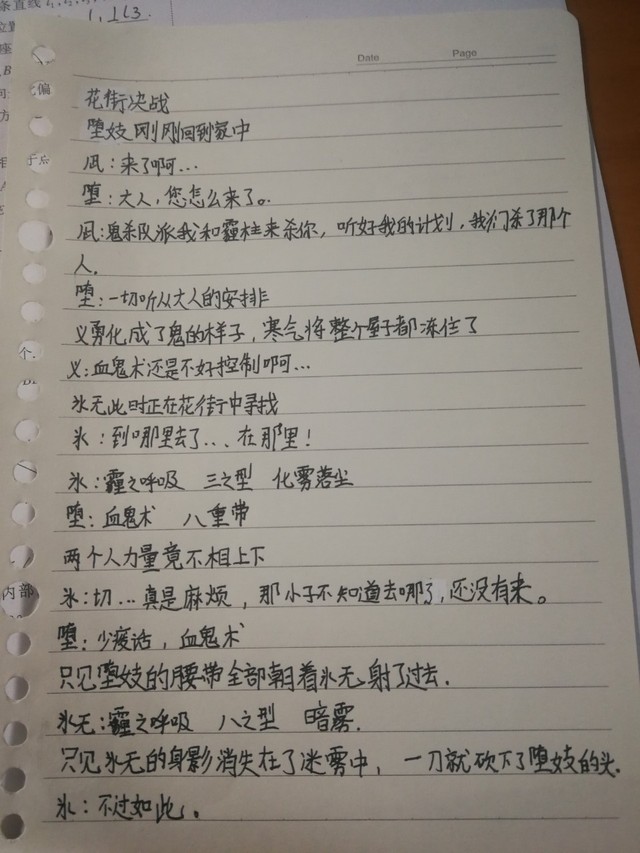 Date Page
花街决战
堕妓刚刚回到家中
凪：来了啊…
堕：大人，您怎么来了。
凪：鬼杀队派我和霾柱来杀你，听好我的计划，我们杀了那个
人.
堕：一切听从大人的安排
义勇化成了鬼的样子，寒气将整个屋子都冻住了
义：血鬼术还是不好控制啊…
氷无此时正在花街中寻找
氷：到哪里去了…、在那里！
氷：霾之呼吸 三之型 化雾落尘
堕：血鬼术 八重带
两个人力量竟不相上下
内部
氷：切…真是麻烦，那小子不知道去哪了，还没有来。
堕：少废话，血鬼术
只见堕妓的腰带全部朝着氷无射了过去.
氷无：霾之呼吸 八之型 暗雾.
只见氷无的身影消失在了迷雾中，一刀就砍下了堕妓的头.
氷：不过如此.